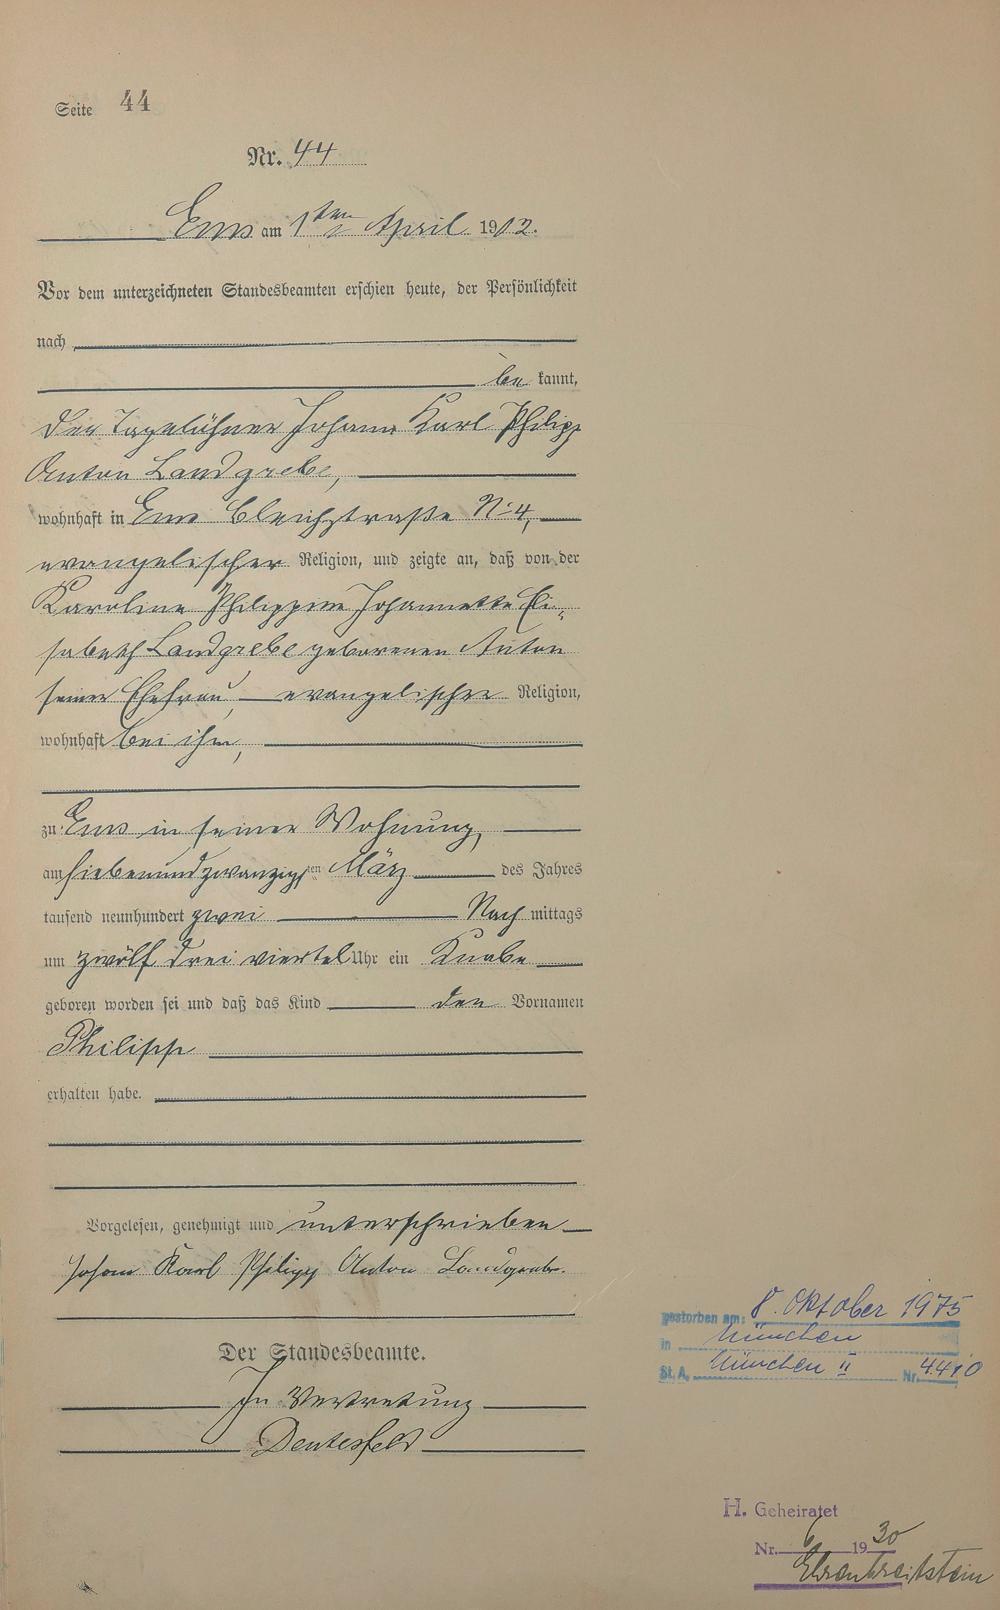 Seite 44
Nr. 44
Ems am 1ten April 1902.
Vor dem unterzeichneten Standesbeamten erschien heute, der Persönlichkeit
nach
be kannt,
der Tagelöhner Johann Karl Philipp
Anton Landgrebe,
wohnhaft in Ems Bleichstraße No 4,
evangelischer Religion, und zeigte an, daß von der
Karoline Philippine Johannette Eli-
sabeth Landgrebe geborenen Anton
seiner Ehefrau, evangelischer Religion,
wohnhaft bei ihm,
zu Ems in seiner Wohnung,
am siebenundzwanzigsten März des Jahres
tausend neunhundert zwei Nach mittags
um zwölf drei viertel Uhr ein Knabe
geboren worden sei und daß das Kind den Vornamen
Philipp
erhalten habe.
Vorgelesen, genehmigt und unterschrieben
Johann Karl Philipp Anton Landgrebe.
Der Standesbeamte.
In Vertretung
gestorben am: 8. Oktober 1975
in München
St. A. München II Nr. 4410
H. Geheiratet
Nr. 6 1930
Ehrenbreitstein